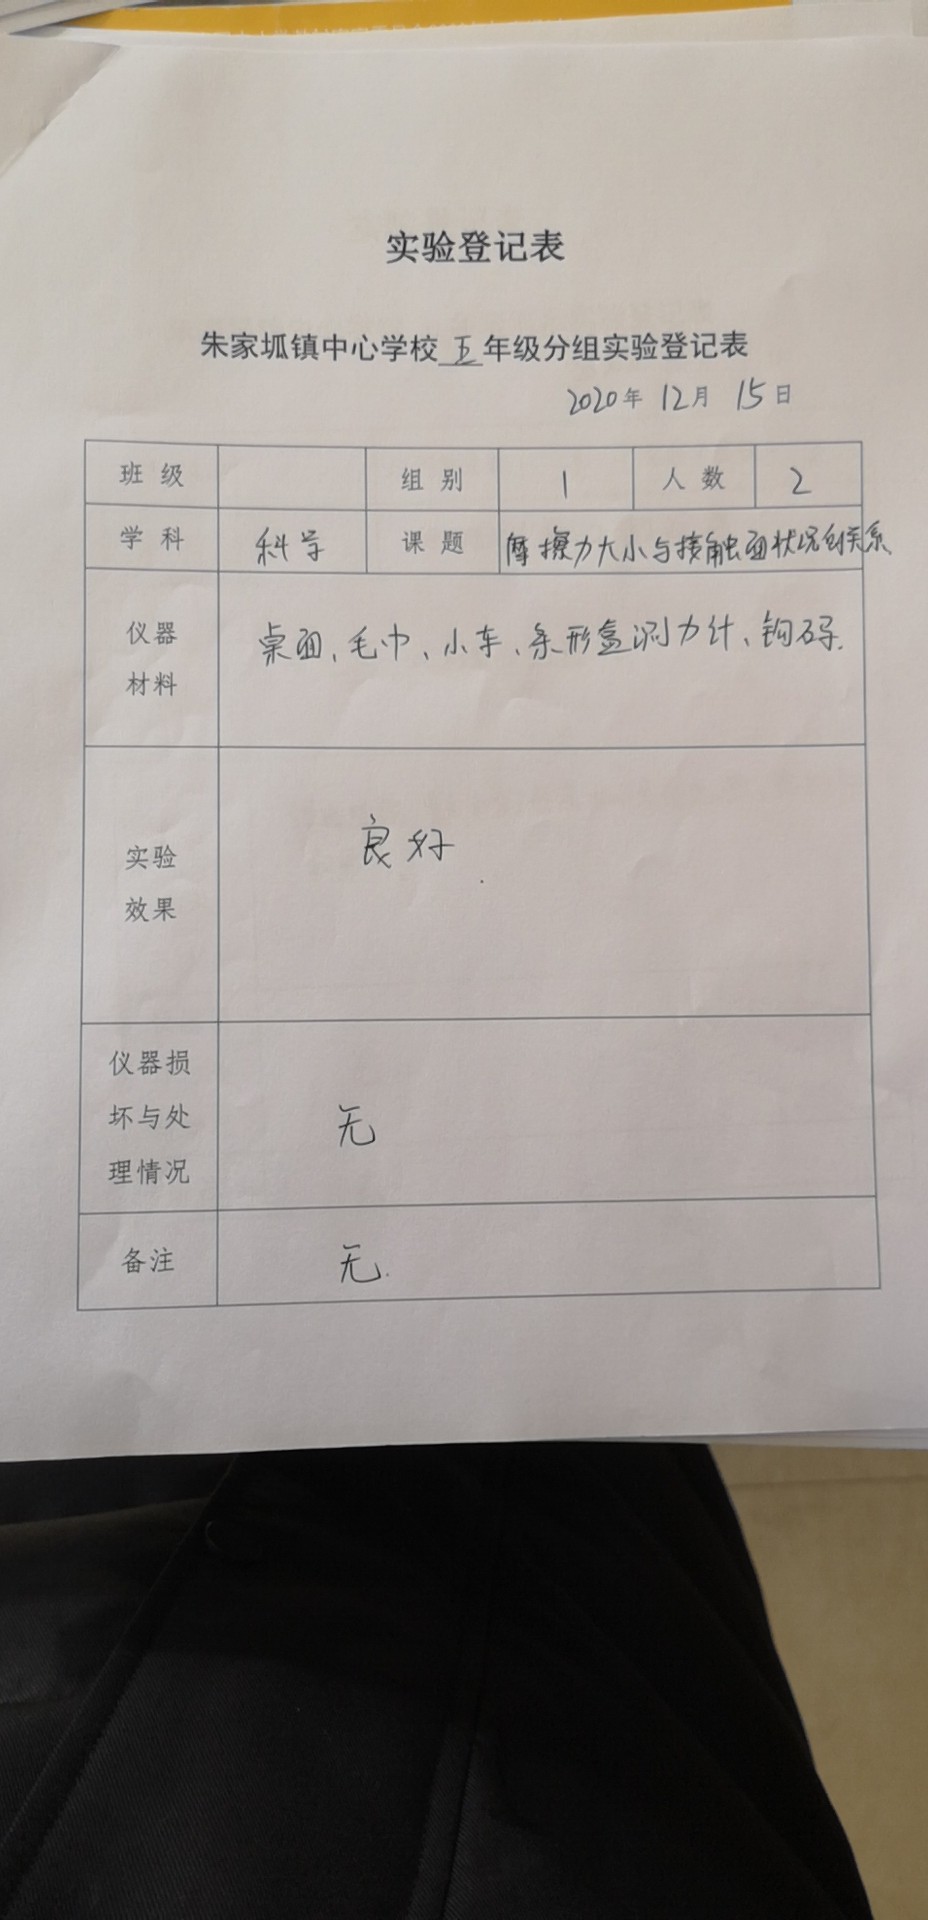 实验登记表
朱家坬镇中心学校五年级分组实验登记表
2020年 12月 15日
班级 组别 1 人数 2
学科 科学 课题 摩擦力大小与接触面状况的关系
仪器 桌面、毛巾、小车、条形盒测力计、钩码.
材料
实验 良好
效果
仪器损
坏与处 无
理情况
备注 无.